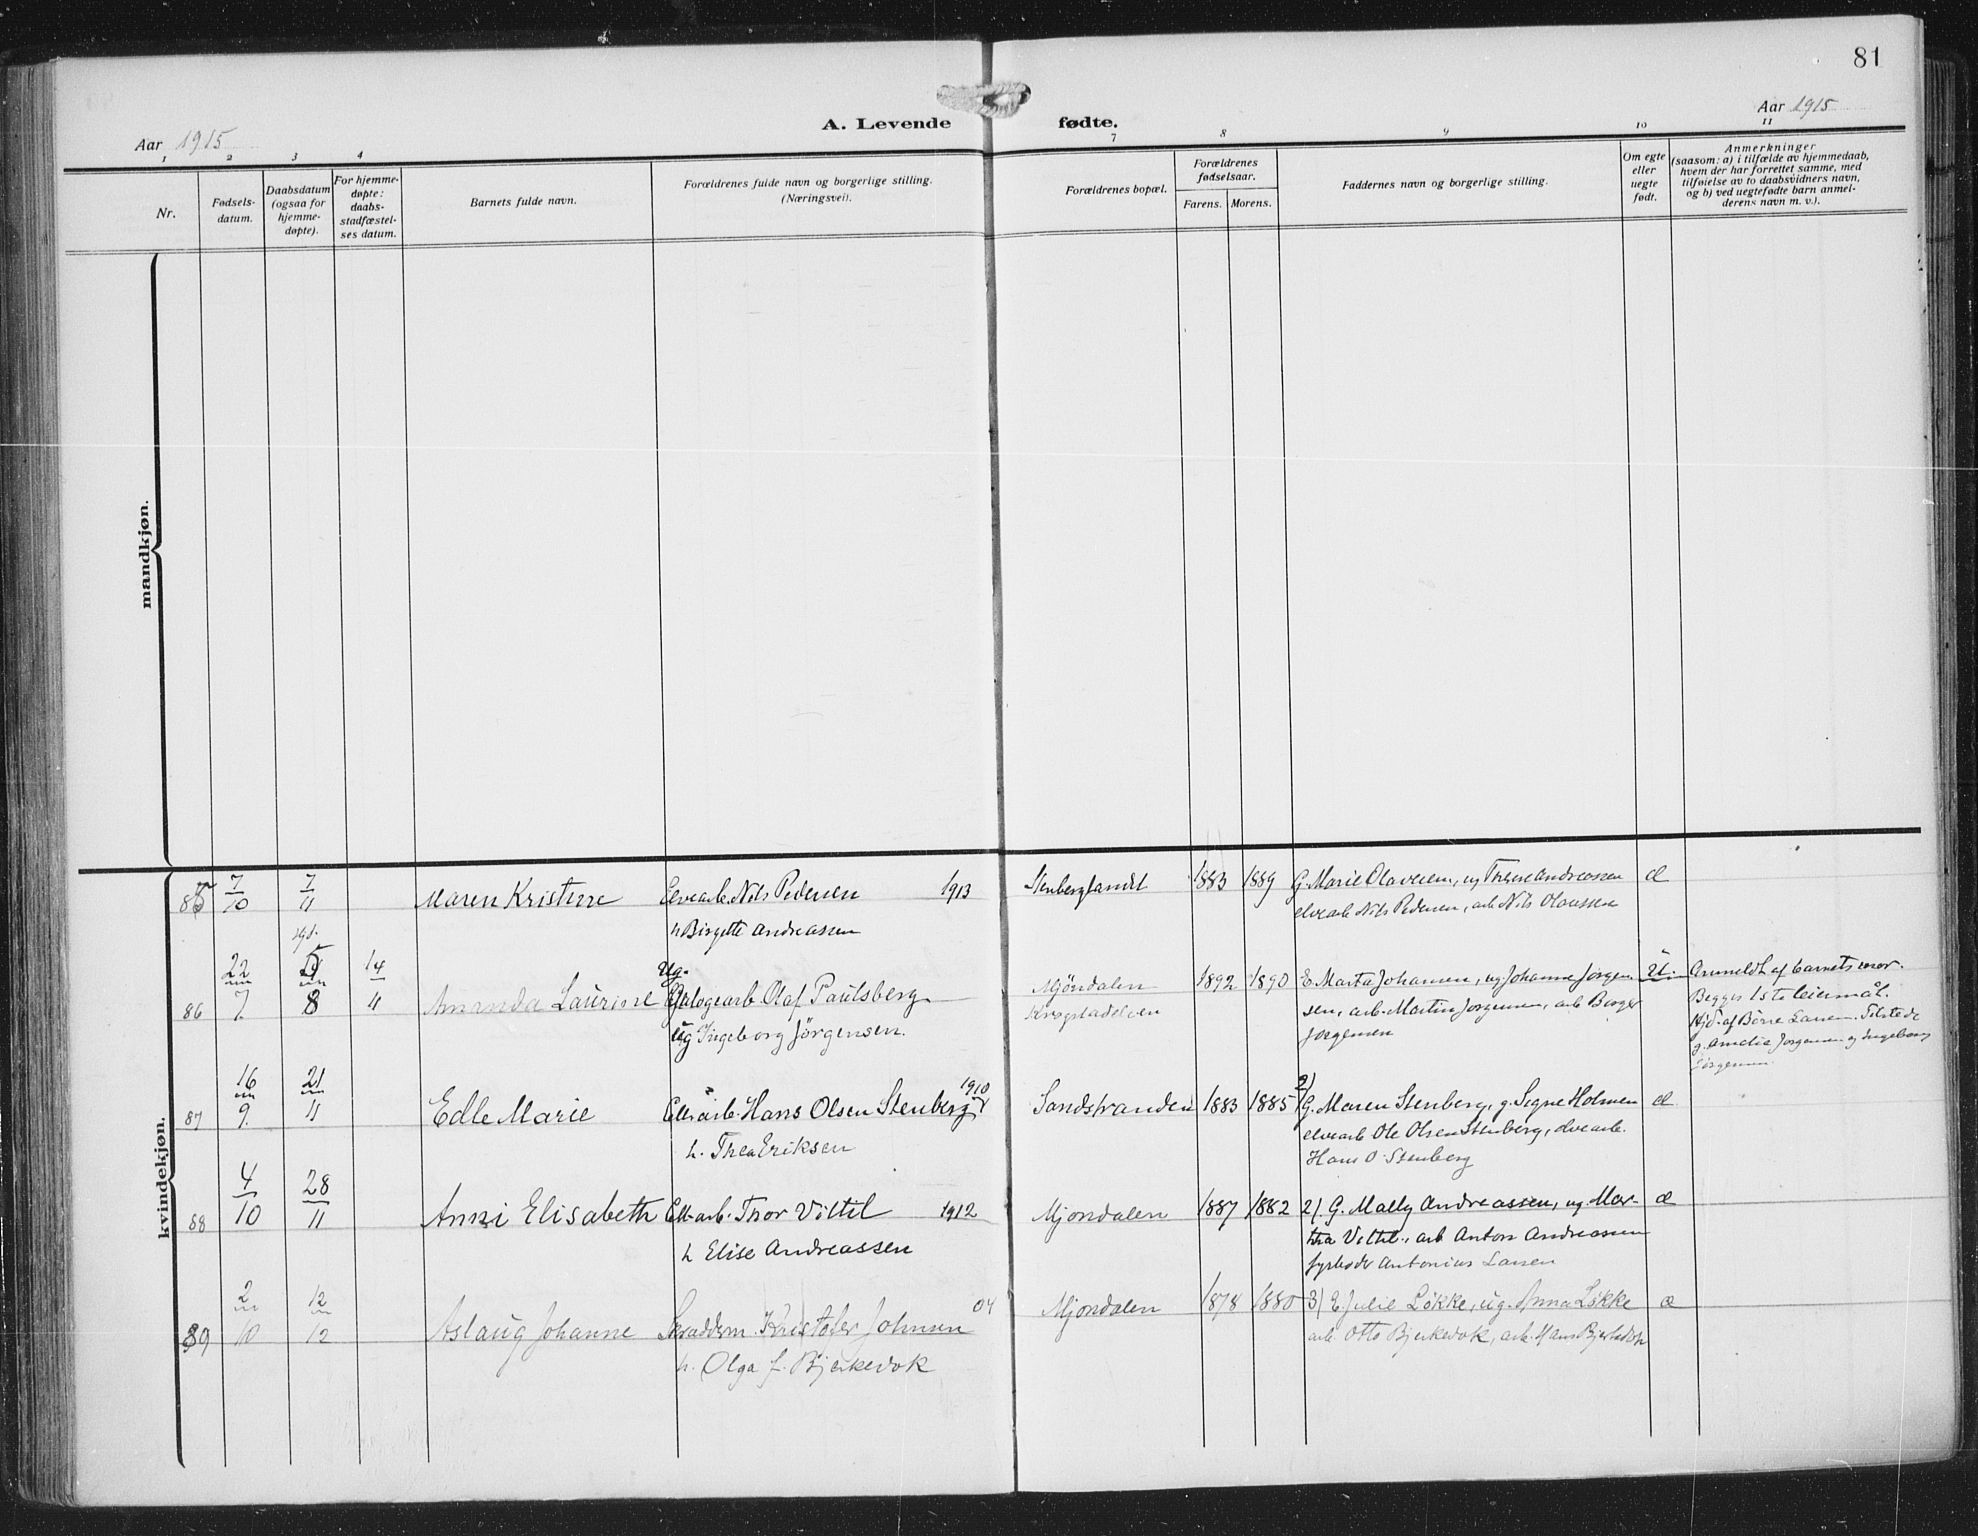 81
Aar 1915
A. Levende fødte.
Aar 1915
1 2 3 4 7 8 9 10 11
Nr.
Fødsels-
datum.
Daabsdatum
(ogsaa for
hjemme-
døpte).
For hjemme-
døpte:
daabs-
stadfæstel-
ses datum.
Barnets fulde navn.
Forældrenes fulde navn og borgerlige stilling.
(Næringsvei).
Forældrenes bopæl.
Forældrenes
fødselsaar.
Farens. Morens.
Faddernes navn og borgerlige stilling.
Om egte
eller
uegte
født.
Anmerkninger
(saasom: a) i tilfælde av hjemmedaab,
hvem der har forrettet samme, med
tilføielse av to daabsvidners navn,
og b) ved uegtefødte barn anmel-
derens navn m. v.).
mandkjøn.
kvindekjøn.
85 7/10 7/11 Maren Kristine Elvearb. Nils Pedersen 1913 Stenberglandet 1883 1889 G. Marie Olavesen, ug Therese Andreassen æ
elvearb Nils Pedersen, arb Nils Olaussen
h Birgitte Andreassen
Hjd.
86 22/7 8 14/11 Amanda Laurine Ug. Olaf Paulsberg
ug Ingeborg Jørgensen.
Mjöndalen
Krogstadelven
1892 1890 E Marta Johansen, ug Johanne Jørgen-
sen, arb. Martin Jorgensen, arb Borger
Jorgensen
U.
Anmeldt af barnets mor.
Begges 1ste leiermål.
Hjd. af Börre Larsen. Tilstede
g. Amelia Jorgensen og Ingeborg
Jörgensen.
87 16/9 21/11 Edle Marie arb. Hans Olsen Stenberg 1910
h. Thea Eriksen
Sandstranden 1883 1885 2) G. Maren Stenberg, g. Signe Holmen æ
elvearb Ole Olsen Stenberg, elvearb.
Hans O. Stenberg
88 4/10 28/11 Anni Elisabeth arb. Thor Vittil 1912
h Elise Andreassen
Mjondalen 1887 1882 2) G. Mally Andreassen, ug. Mar-
tha Vittil, arb Anton Andreassen
fyrbøder Antonius Larsen
æ
89 2/10 12/12 Aslaug Johanne Skræddern. Kristofer Johnsen 04
h. Olga f. Bjerkevok
Mjondalen 1878 1880 3) E. Julie Løkke, ug. Anna Løkke æ
arb. Otto Bjerkevok, arb. Hans Bjerkevok